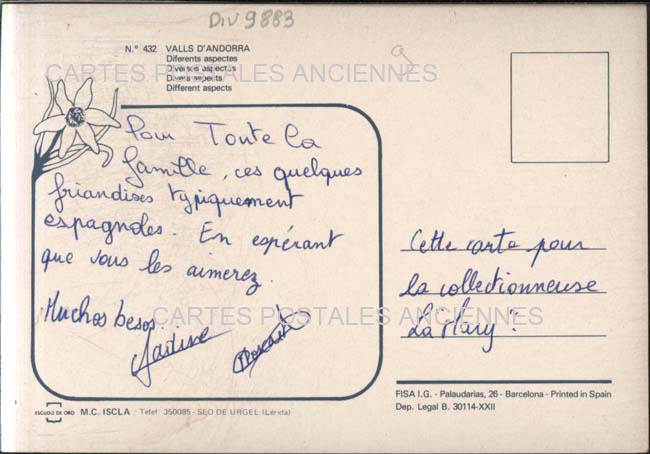 Div 9883
N.º 432 VALLS D'ANDORRA
Diferents aspectes
Diversos aspectos
Divers aspects
Different aspects
CARTES POSTALES ANCIENNES
Pour Toute la
famille, ces quelques
friandises typiquement
espagnoles. En espérant
que vous les aimerez.
Muchos besos.
Cette carte pour
la collectionneuse
"La Mary".
CARTES POSTALES ANCIENNES
FISA I.G. - Palaudarias, 26 - Barcelona - Printed in Spain
Dep. Legal B. 30114-XXII
ESCUDO DE ORO M.C. ISCLA - Telef. 350085 - SEO DE URGEL (Lérida)